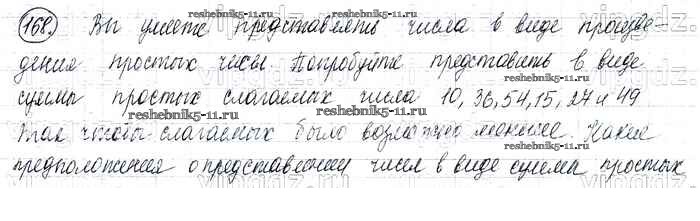 168. Вы умеете представлять числа в виде произве-
дения простых чисел. Попробуйте представить в виде
суммы простых слагаемых числа 10, 36, 54, 15, 27 и 49
так чтобы слагаемых было возможно меньше. Какие
предположения о представлении чисел в виде суммы простых
reshebnik5-11.ru
reshebnik5-11.ru
reshebnik5-11.ru
reshebnik5-11.ru
reshebnik5-11.ru
reshebnik5-11.ru
vingdz.ru